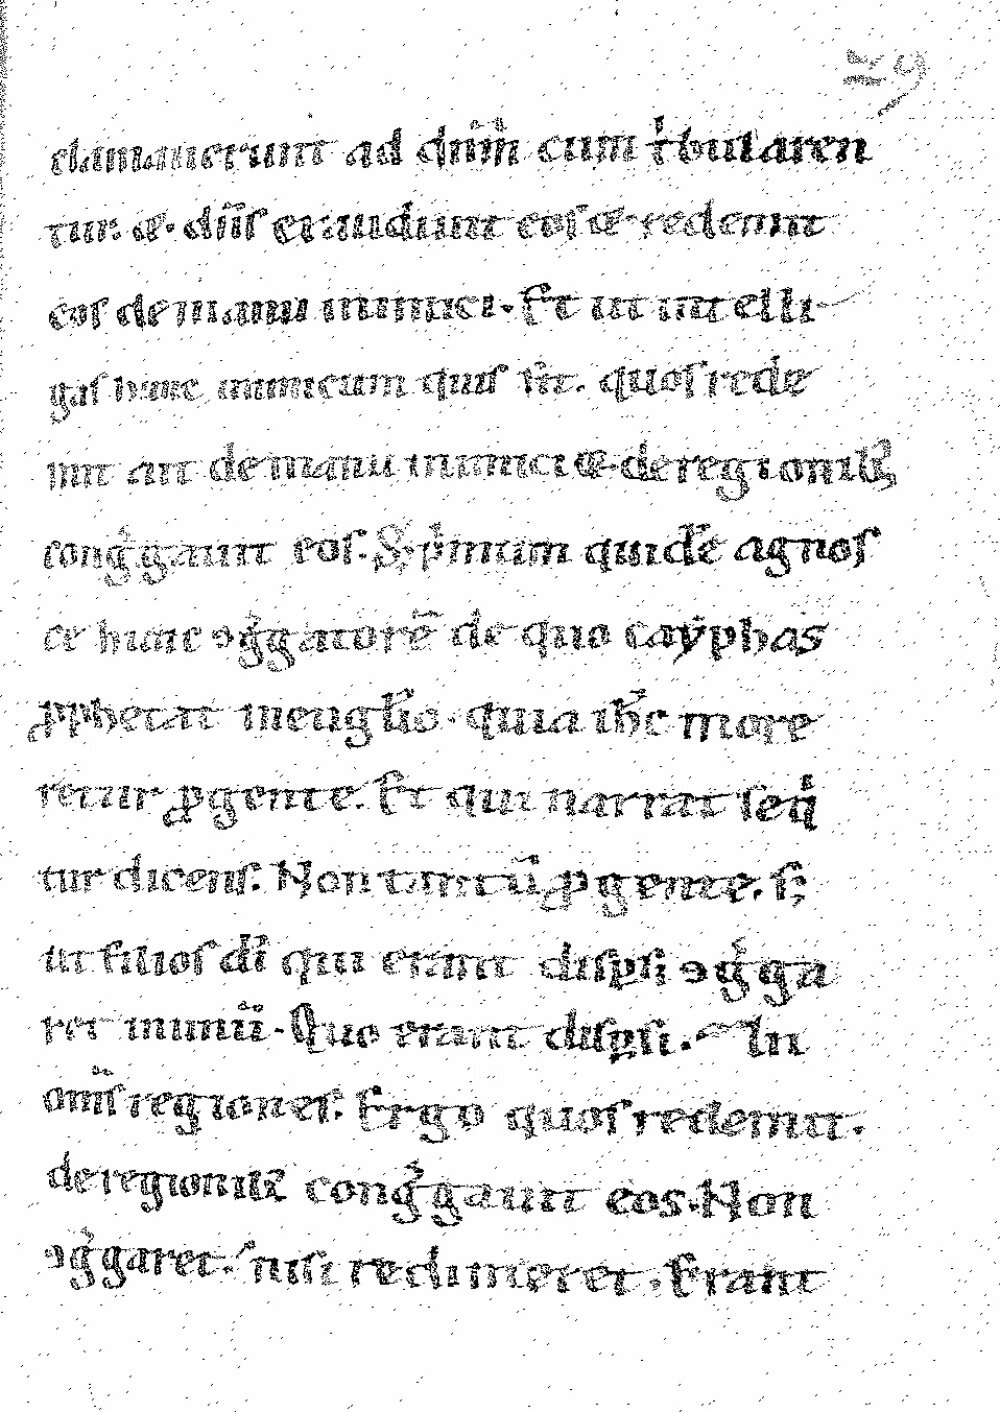 clamauerunt ad dn̄m cum tͥbularen
tur. & dn̄s exaudiuit eos & redemit
eos de manu inimici. Et ut intelli
gas hunc inimicum quis sit. quos rede
mit ait de manu inimici & de regionibꝫ
congͤgauit eos. Sꝫ pͥmum quidē agnos
ce hunc ꝯgͤgatorē de quo cayphas
ꝓphetat in euglio. quia ihc more
retur ꝓ gente. Et qui narrat seqͥ
tur dicens. Non tantū ꝓ gente. sꝫ
ut filios dī qui erant disꝑsi ꝯgͤga
ret in unū. Quo erant disꝑsi. In
om̄s regiones. Ergo quos redemit.
de regionibꝫ congͤgauit eos. Non
ꝯgͤgaret. nisi redimeret. Erant